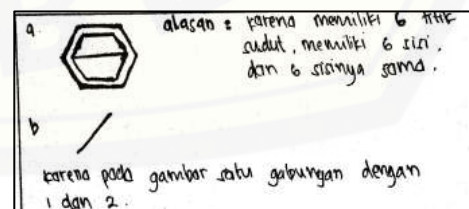 a. alasan : karena memiliki 6 titik
sudut, memiliki 6 sisi,
dan 6 sisinya sama.
b
karena pada gambar satu gabungan dengan
1 dan 2.